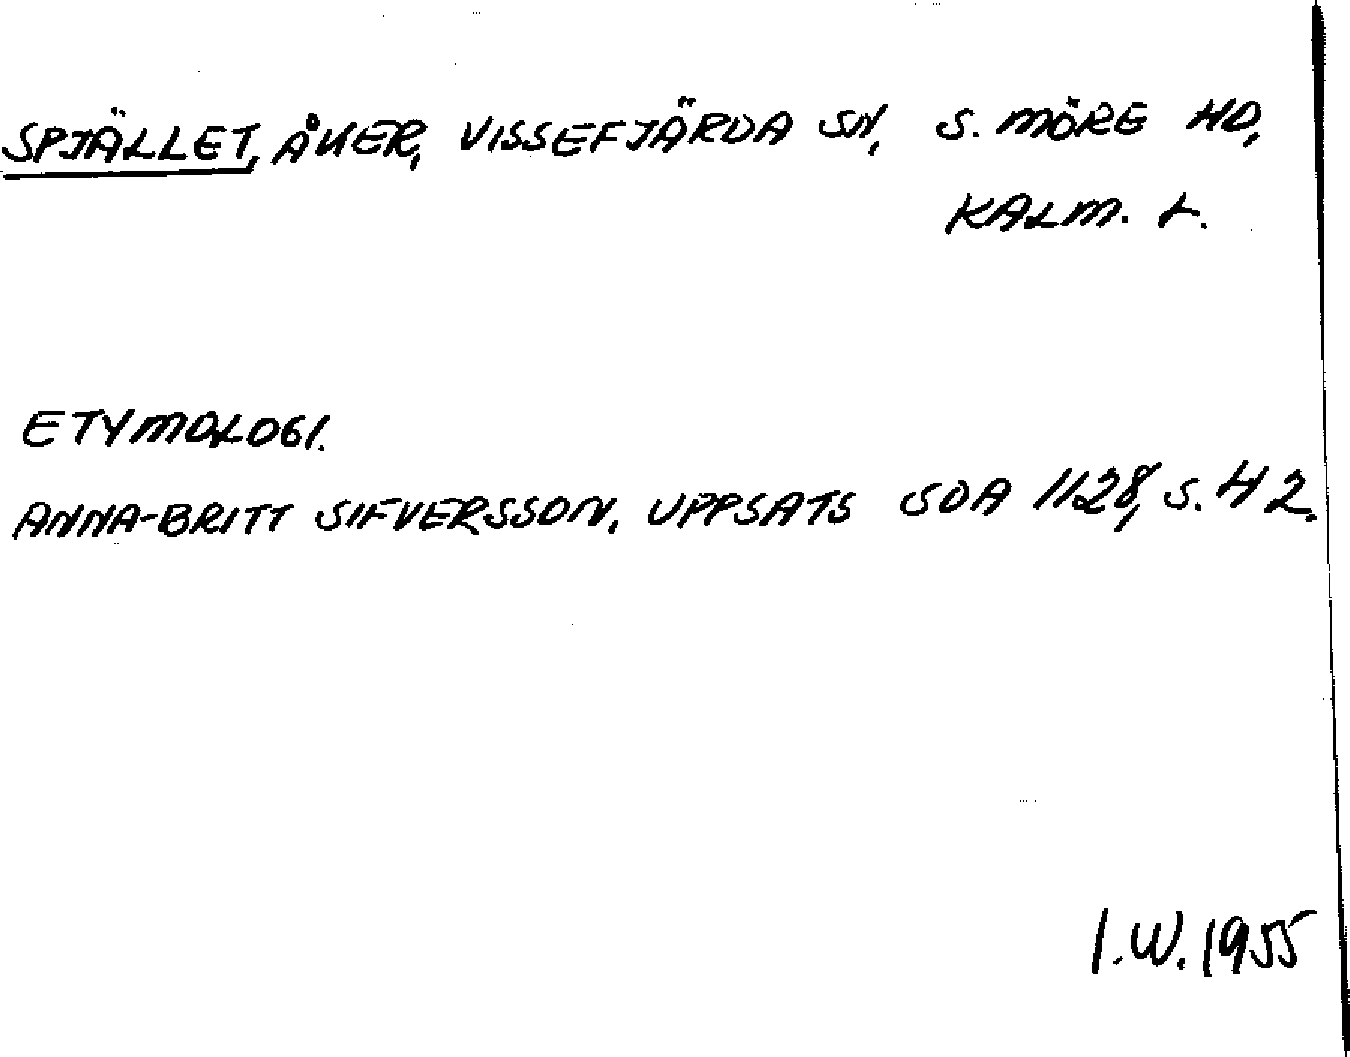 SPJÄLLET, ÅKER, VISSEFJÄRDA SN, S. MÖRE HD,
KALM. L.
ETYMOLOGI.
ANNA-BRITT SIFVERSSON, UPPSATS SOA 1128, S. 42.
I.W. 1955